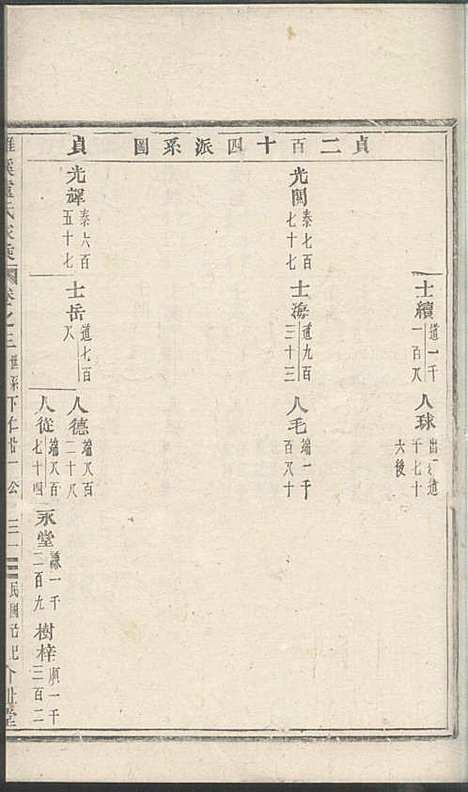 貞二百十四派系圖　貞
士續 道一千一百八
人球 出道千七十六後
光開 泰七百七十七
士海 道九百三十三
人毛 端一千百八十
光輝 泰六百五十七
士岳 道七百八
人德 端八百二十八
人從 端八百七十四
永堂 謙一千二百九
樹梓 順一千三百二
卷之三 世系 下 一公